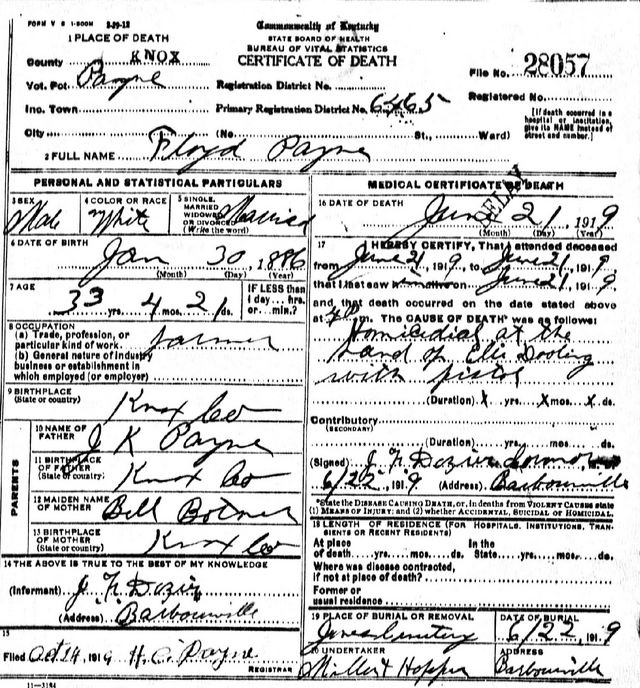 FORM V S 1-500M 3-29-12
Commonwealth of Kentucky
STATE BOARD OF HEALTH
BUREAU OF VITAL STATISTICS
CERTIFICATE OF DEATH
1 PLACE OF DEATH
County KNOX
Vot. Pct. Payne
Inc. Town
City (No. St., Ward)
Registration District No.
Primary Registration District No. 6465
File No. 28057
Registered No.
[If death occurred in a
hospital or institution,
give its NAME instead of
street and number.]
2 FULL NAME Floyd Payne
PERSONAL AND STATISTICAL PARTICULARS
3 SEX
Male
4 COLOR OR RACE
White
5 SINGLE,
MARRIED
WIDOWED
OR DIVORCED
(Write the word)
Married
6 DATE OF BIRTH
Jan 30, 1886
(Month) (Day) (Year)
7 AGE
33 yrs. 4 mos. 21 ds.
IF LESS than
1 day... hrs.
or... min.?
8 OCCUPATION
(a) Trade, profession, or
particular kind of work. farmer
(b) General nature of industry
business or establishment in
which employed (or employer)
9 BIRTHPLACE
(State or country) Knox Co
PARENTS
10 NAME OF
FATHER J K Payne
11 BIRTHPLACE
OF FATHER
(State or country) Knox Co
12 MAIDEN NAME
OF MOTHER Bell
13 BIRTHPLACE
OF MOTHER
(State or country) Knox Co
14 THE ABOVE IS TRUE TO THE BEST OF MY KNOWLEDGE
(Informant) J. F. Dozier
(Address) Barbourville
15
Filed Oct 14, 1919 H. C. Payne
REGISTRAR
11-3184
MEDICAL CERTIFICATE OF DEATH
DELAY
16 DATE OF DEATH
June 21, 1919
(Month) (Day) (Year)
17 I HEREBY CERTIFY, That I attended deceased
from June 21, 1919, to June 21, 1919
that I last saw alive on June 21, 1919,
and that death occurred on the date stated above
at 4 P m. The CAUSE OF DEATH* was as follows:
Homicidial at the
hand of Elli Dooling
with pistol
(Duration) x yrs. x mos. x ds.
Contributory
(SECONDARY)
(Duration) yrs. mos. ds.
(Signed) J. F. Dozier
6/22, 1919 (Address) Barbourville
*State the DISEASE CAUSING DEATH, or, in deaths from VIOLENT CAUSES state
(1) MEANS OF INJURY; and (2) whether ACCIDENTAL, SUICIDAL OR HOMICIDAL.
18 LENGTH OF RESIDENCE (FOR HOSPITALS, INSTITUTIONS, TRAN-
SIENTS OR RECENT RESIDENTS)
At place In the
of death....yrs....mos....ds. State....yrs....mos....ds.
Where was disease contracted,
if not at place of death?
Former or
usual residence
19 PLACE OF BURIAL OR REMOVAL
Cemetery
DATE OF BURIAL
6/22, 1919
20 UNDERTAKER
Miller & Hopper
ADDRESS
Barbourville